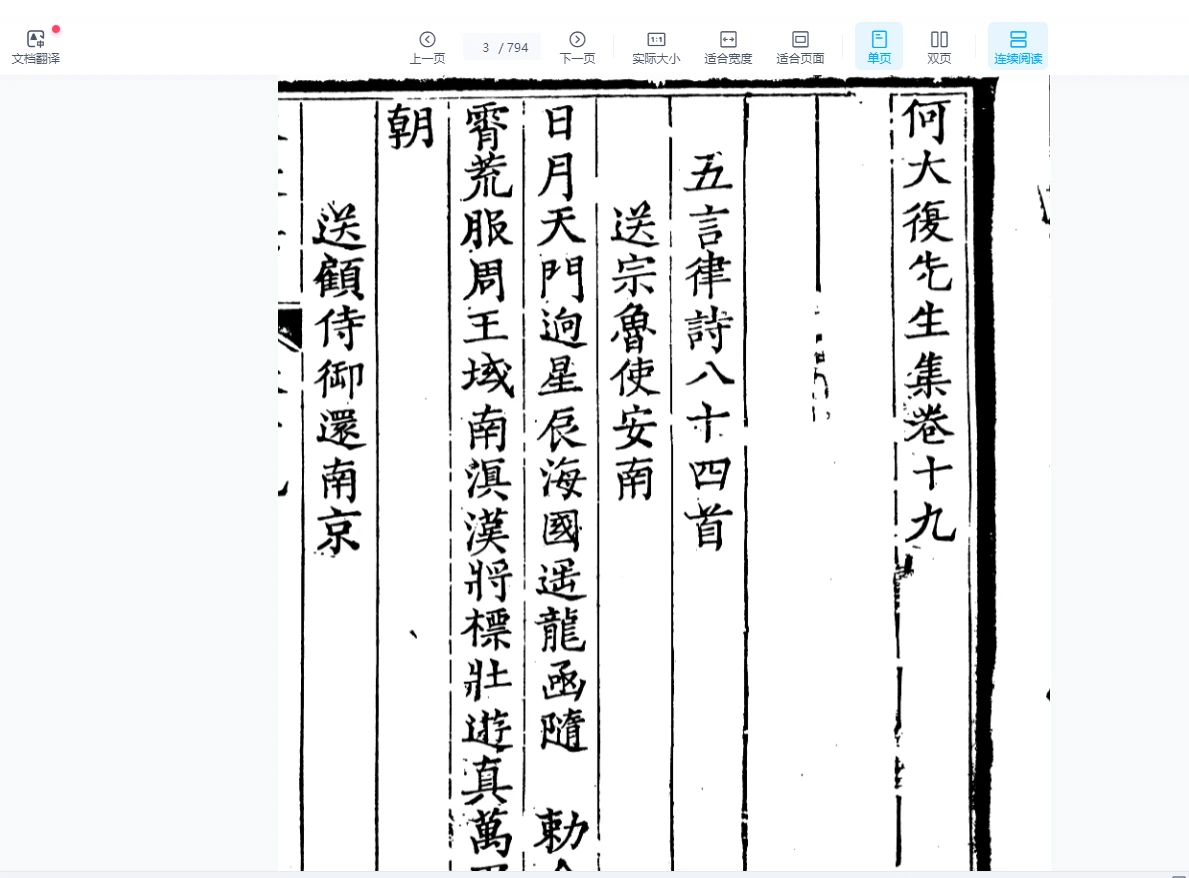 文档翻译
上一页
3 / 794
下一页
1:1
实际大小
适合宽度
适合页面
单页
双页
连续阅读
何大復先生集卷十九
五言律詩八十四首
送宗魯使安南
日月天門逈星辰海國遥龍凾隨 勅
霄荒服周王域南溟漢將標壯遊真萬
朝
送顧侍御還南京